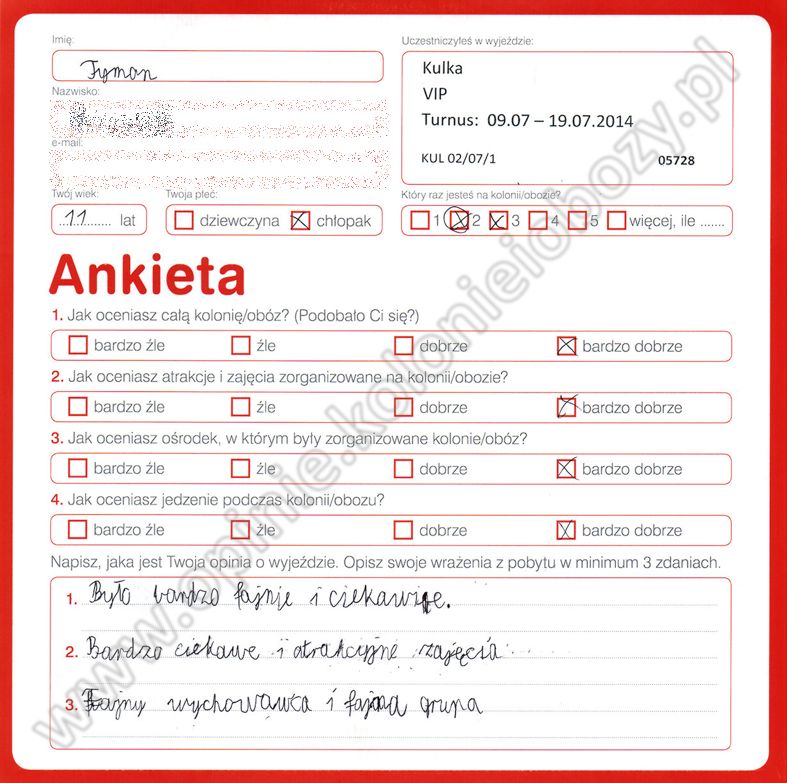 Imię:
Tymon
Uczestniczyłeś w wyjeździe:
Kulka
VIP
Turnus: 09.07 – 19.07.2014
KUL 02/07/1 05728
Nazwisko:
e-mail:
Twój wiek:
11 lat
Twoja płeć:
dziewczyna chłopak
Który raz jesteś na kolonii/obozie?
1 2 3 4 5 więcej, ile .......
Ankieta
1. Jak oceniasz całą kolonię/obóz? (Podobało Ci się?)
bardzo źle źle dobrze bardzo dobrze
2. Jak oceniasz atrakcje i zajęcia zorganizowane na kolonii/obozie?
bardzo źle źle dobrze bardzo dobrze
3. Jak oceniasz ośrodek, w którym były zorganizowane kolonie/obóz?
bardzo źle źle dobrze bardzo dobrze
4. Jak oceniasz jedzenie podczas kolonii/obozu?
bardzo źle źle dobrze bardzo dobrze
Napisz, jaka jest Twoja opinia o wyjeździe. Opisz swoje wrażenia z pobytu w minimum 3 zdaniach.
1. Było bardzo fajnie i ciekawie.
2. Bardzo ciekawe i atrakcyjne zajęcia
3. Fajny wychowawca i fajna grupa
www.opinie.kolonieiobozy.pl